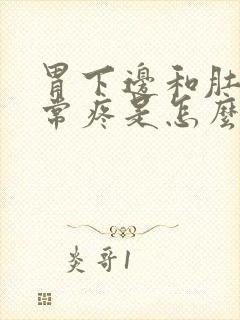 胃下邊和肚
常疼是怎麼
炎哥1